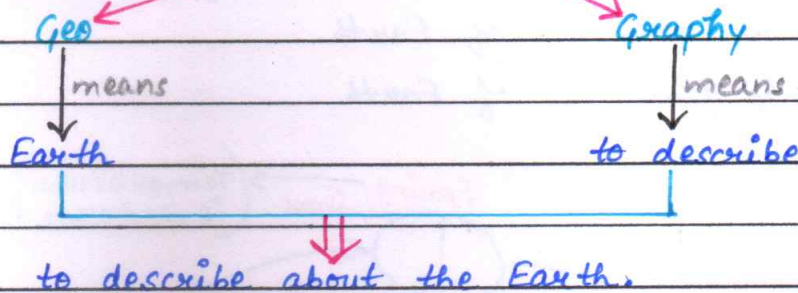 Geo Graphy
means means
Earth to describe
to describe about the Earth.